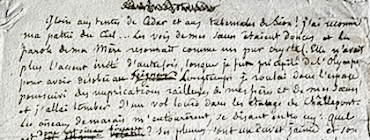 Gloire aux tentes de Cédar et aux tabernacles de Sion ! J'ai reconnu
ma patrie du Ciel... Les voix de mes Sœurs étaient douces et la
parole de ma Mère résonnait comme un pur crystal. Elle n'avait
plus l'accent irrité d'autrefois lorsque je fus précipité de l'Olympe
pour avoir désobéi au Longtemps je roulai dans l'espace
poursuivi des imprécations railleuses de mes frères et de mes Sœurs
et j'allai tomber d'un vol lourd dans les étangs de Châllepont.
Les oiseaux de marais m'entourèrent, se disant entre eux : quel
est cet Ses plumes sont un duvet jaune et son